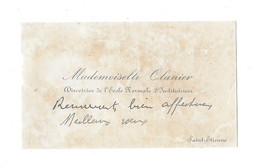 Mademoiselle Olanier
Directrice de l'Ecole Normale d'Institutrices
Remerciements bien affectueux
Meilleurs vœux
Saint-Etienne